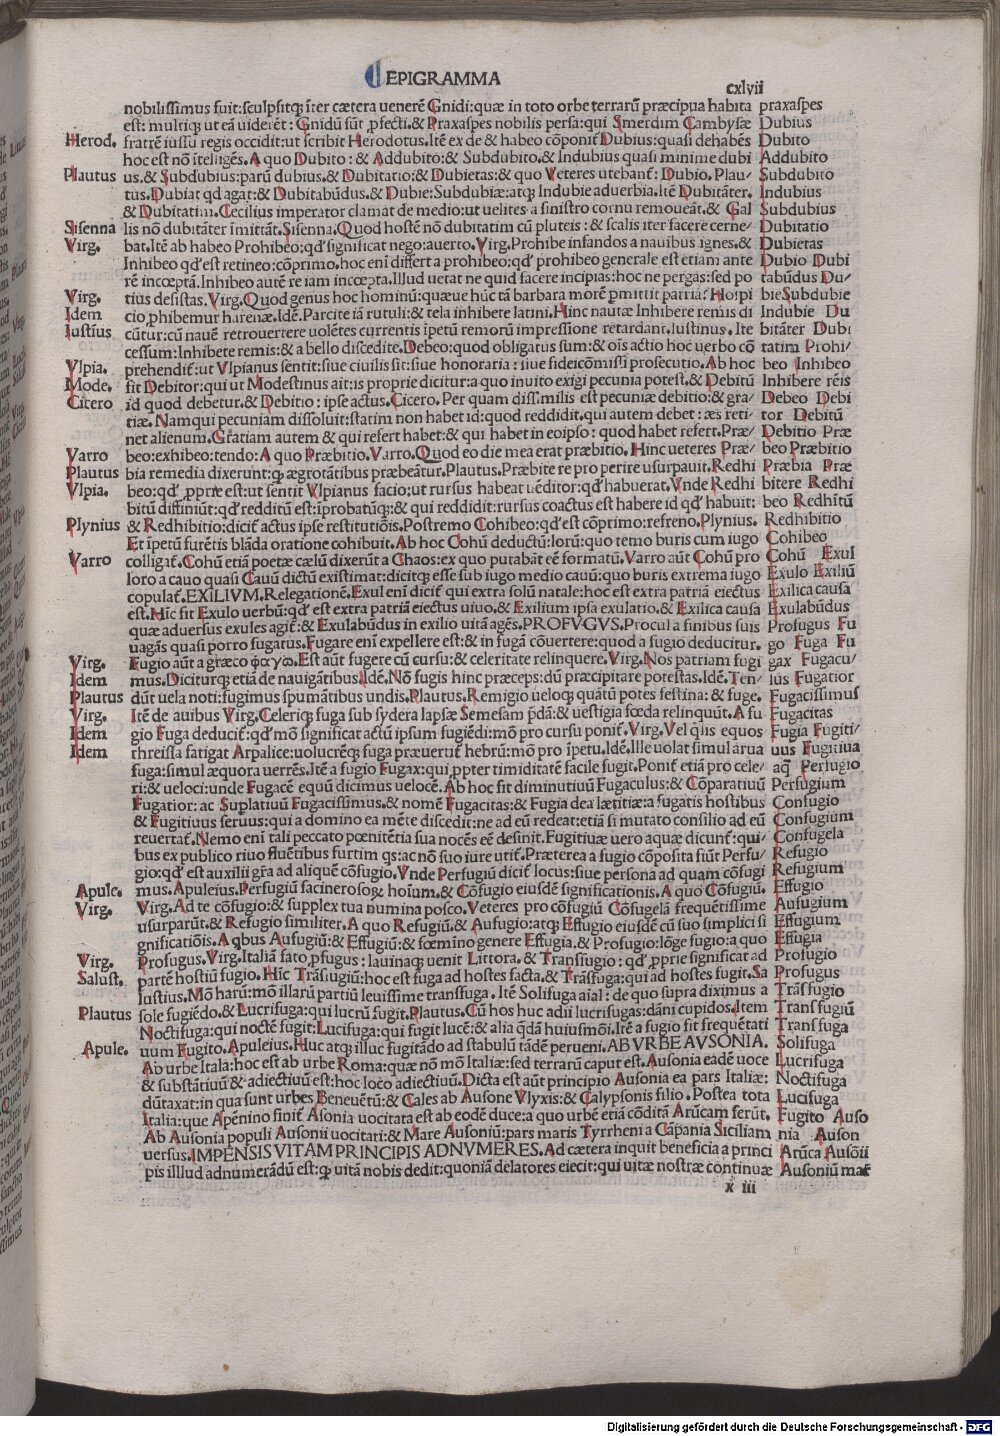 EPIGRAMMA
cxlvii
nobilissimus fuit:sculpsitq̃ īter cætera venerē Gnidi:quæ in toto orbe terrarū præcipua habita praxaspes
est: multiq; ut eā uiderēt: Gnidū sūt ꝓfecti.& Praxaspes nobilis persa:qui Smerdim Cambysæ Dubius
Herod. fratrē iussu regis occidit:ut scribit Herodotus.Itē ex de & habeo cōponit᷑ Dubius:quasi dehabēs Dubito
hoc est nō ītelligēs.A quo Dubito: & Addubito:& Subdubito.& Indubius quasi minime dubi Addubito
Plautus us.& Subdubius:parū dubius.& Dubitatio:& Dubietas:& quo Veteres utebant᷑: Dubio.Plau/ Subdubito
tus.Dubiat qd agat:& Dubitabūdus.& Dubie:Subdubiæ:atq; Indubie aduerbia.Itē Dubitāter. Indubius
& Dubitatim.Cecilius imperator clamat de medio:ut uelites a sinistro cornu remoueāt.& Gal Subdubius
Sisenna lis nō dubitāter īmittāt.Sisenna.Quod hostē nō dubitatim cū pluteis:& scalis iter facere cerne/ Dubitatio
Virg. bat.Itē ab habeo Prohibeo:qd' significat nego:auerto.Virg.Prohibe infandos a nauibus ignes.& Dubietas
Inhibeo qd' est retineo:cōprimo.hoc enī differt a prohibeo:qd' prohibeo generale est etiam ante Dubio Dubi
rē incœptā.Inhibeo autē re iam incœpta.Illud uetat ne quid facere incipias:hoc ne pergas:sed po tabūdus Du/
Virg. tius desistas.Virg.Quod genus hoc hominū:quæue hūc tā barbara morē ꝑmittit patria? Hospi bieSubdubie
Idem cio ꝓhibemur harenæ.Idē.Parcite iā rutuli:& tela inhibete latini.Hinc nautæ Inhibere remis di Indubie Du
Iustīus cūtur:cū nauē retrouertere uolētes currentis īpetū remorū impressione retardant.Iustinus.Ite bitāter Dubi
cessum:Inhibete remis:& a bello discedite.Debeo:quod obligatus sum:& oīs actio hoc uerbo cō tatim Prohi/
Vlpia. prehendit᷑:ut Vlpianus sentit:siue ciuilis sit:siue honoraria: siue fideicōmissi prosecutio.Ab hoc beo Inhibeo
Mode. fit Debitor:qui ut Modestinus ait:is proprie dicitur:a quo inuito exigi pecunia potest.& Debitū Inhibere rēis
Cicero id quod debetur.& Debitio: ipse actus.Cicero.Per quam diss.milis est pecuniæ debitio:& gra/ Debeo Debi
tiæ.Namqui pecuniam dissoluit:statim non habet id:quod reddidit.qui autem debet: æs reti/ tor Debitū
net alienum.Gratiam autem & qui refert habet:& qui habet in eoipso: quod habet refert.Præ/ Debitio Præ
Varro beo:exhibeo:tendo:A quo Præbitio.Varro.Quod eo die mea erat præbitio.Hinc ueteres Præ/ beo Præbitio
Plautus bia remedia dixerunt:q; ægrotātibus præbeātur.Plautus.Præbite re pro perire usurpauit.Redhi Præbia Præ
Vlpia. beo:qd' ꝓprie est:ut sentit Vlpianus facio:ut rursus habeat uēditor:qd' habuerat.Vnde Redhi bitere Redhi
bitū diffiniūt:qd' redditū est:īprobatūq;:& qui reddidit:rursus coactus est habere id qd' habuit: beo Redhītū
Plynius & Redhibitio:dicit᷑ actus ipse restitutiōis.Postremo Cohibeo:qd' est cōprimo:refreno.Plynius. Redhibitio
Et īpetū furētis blāda oratione cohibuit.Ab hoc Cohū deductū:lorū:quo temo buris cum iugo Cohibeo
Varro colligat᷑.Cohū etiā poetæ cælū dixerūt a Chaos:ex quo putabāt eē formatū.Varro aūt Cohū pro Cohū Exul
loro a cauo quasi Cauū dictū existimat:dicitq; esse sub iugo medio cauū:quo buris extrema iugo Exulo Exiliū
copulat᷑.EXILIVM.Relegationē.Exul enī dicit᷑ qui extra solū natale:hoc est extra patriā eiectus Exilica causa
est.Hīc fit Exulo uerbū:qd' est extra patriā eiectus uiuo.& Exilium ipsa exulatio.& Exilica causa Exulabūdus
quæ aduersus exules agit᷑:& Exulabūdus in exilio uitā agēs.PROFVGVS.Procul a finibus suis Profugus Fu
uagās quasi porro fugatus.Fugare enī expellere est:& in fugā cōuertere:quod a fugio deducitur. go Fuga Fu
Virg. Fugio aūt a græco φαγω.Est aūt fugere cū cursu:& celeritate relinquere.Virg.Nos patriam fugi gax Fugacu/
Idem mus.Dicitur q; etiā de nauigātibus.Idē.Nō fugis hinc præceps:dū præcipitare potestas.Idē.Ten/ lus Fugatior
Plautus dūt uela noti:fugimus spumātibus undis.Plautus.Remigio ueloq; quātū potes festina:& fuge. Fugacissimus
Virg. Itē de auibus Virg.Celeriq; fuga sub sydera lapsæ Semesam p̄dā:& uestigia fœda relinquūt.A fu Fugacitas
Idem gio Fuga deducit᷑:qd' mō significat actū ipsum fugiēdi:mō pro cursu ponit᷑.Virg.Vel q̄lis equos Fugia Fugiti/
Idem threissa fatigat Arpalice:uolucrēq; fuga præuertit᷑ hebrū:mō pro īpetu.Idē.Ille uolat simul arua uus Fugitiua
fuga:simul æquora uerrēs.Itē a fugio Fugax:qui ꝓpter timiditatē facile fugit.Ponit᷑ etiā pro cele/ aq̄ Perfugio.
ri:& ueloci:unde Fugacē equū dicimus uelocē.Ab hoc fit diminutiuū Fugaculus:& Cōparatiuū Perfugium
Fugatior: ac Suplatiuū Fugacissimus.& nomē Fugacitas:& Fugia dea lætitiæ:a fugatis hostibus Confugio
& Fugitiuus seruus:qui a domino ea mēte discedit:ne ad eū redeat:etiā si mutato consilio ad eū Confugium
reuertat᷑.Nemo enī tali peccato pœnitētia sua nocēs eē desinit.Fugitiuæ uero aquæ dicunt᷑:qui/ Confugela
bus ex publico riuo fluētibus furtim qs:ac nō suo iure utit᷑.Præterea a fugio cōposita sūt Perfu/ Refugio
gio:qd' est auxilii gr̄a ad aliquē cōfugio.Vnde Perfugiū dicit᷑ locus:siue persona ad quam cōfugi Refugium
Apule. mus.Apuleius.Perfugiū facinerosoꝝ hoīum.& Cōfugio eiusdē significationis.A quo Cōfugiū. Effugio
Virg. Virg.Ad te cōfugio:& supplex tua numina posco.Veteres pro cōfugiū Cōfugelā frequētissime Aufugium
usurparūt.& Refugio similiter.A quo Refugiū.& Aufugio:atq; Effugio eiusdē cū suo simplici si Effugium
gnificatiōis.A qbus Aufugiū:& Effugiū:& fœmīno genere Effugia.& Profugio:lōge fugio:a quo Effugia
Virg. Profugus.Virg.Italiā fato ꝓfugus: lauinaq; uenit Littora.& Transfugio: qd' ꝓprie significat ad Profugio
Salust. partē hostiū fugio.Hīc Trāsfugiū:hoc est fuga ad hostes facta.& Trāsfuga:qui ad hostes fugit.Sa Profugus
lustius.Mō harū:mō illarū partiū leuissime transfuga. Itē Solifuga aīal: de quo supra diximus a Trāsfugio
Plautus sole fugiēdo.& Lucrifuga:qui lucrū fugit.Plautus.Cū hos huc adii lucrifugas:dāni cupidos.Item Transfugiū
Noctifuga:qui noctē fugit:Lucifuga:qui fugit lucē:& alia q̄dā huiusmōi.Itē a fugio fit frequētati Transfuga
Apule. uum Fugito.Apuleius.Huc atq; illuc fugitādo ad stabulū tādē perueni.AB VRBE AVSONIA. Solifuga
Ab urbe Itala:hoc est ab urbe Roma:quæ nō mō Italiæ:sed terrarū caput est.Ausonia eadē uoce Lucrifuga
& substātiuū & adiectiuū est:hoc loco adiectiuū.Dicta est aūt principio Ausonia ea pars Italiæ: Noctifuga
dūtaxat:in qua sunt urbes Beneuētū:& Cales ab Ausone Vlyxis:& Calypsonis filio.Postea tota Lucifuga
Italia:que Apēnino finit᷑ Asonia uocitata est ab eodē duce:a quo urbē etiā cōditā Arūcam ferūt. Fugito Auso
Ab Ausonia populi Ausonii uocitati:& Mare Ausoniū:pars maris Tyrrheni a Cāpania Siciliam nia Auson
uersus.IMPENSIS VITAM PRINCIPIS ADNVMERES.Ad cætera inquit beneficia a princi Arūca Ausōii
pis illud adnumerādū est:q; uitā nobis dedit:quoniā delatores eiecit:qui uitæ nostræ continuæ Ausoniū mar
x iii
Digitalisierung gefördert durch die Deutsche Forschungsgemeinschaft - DFG